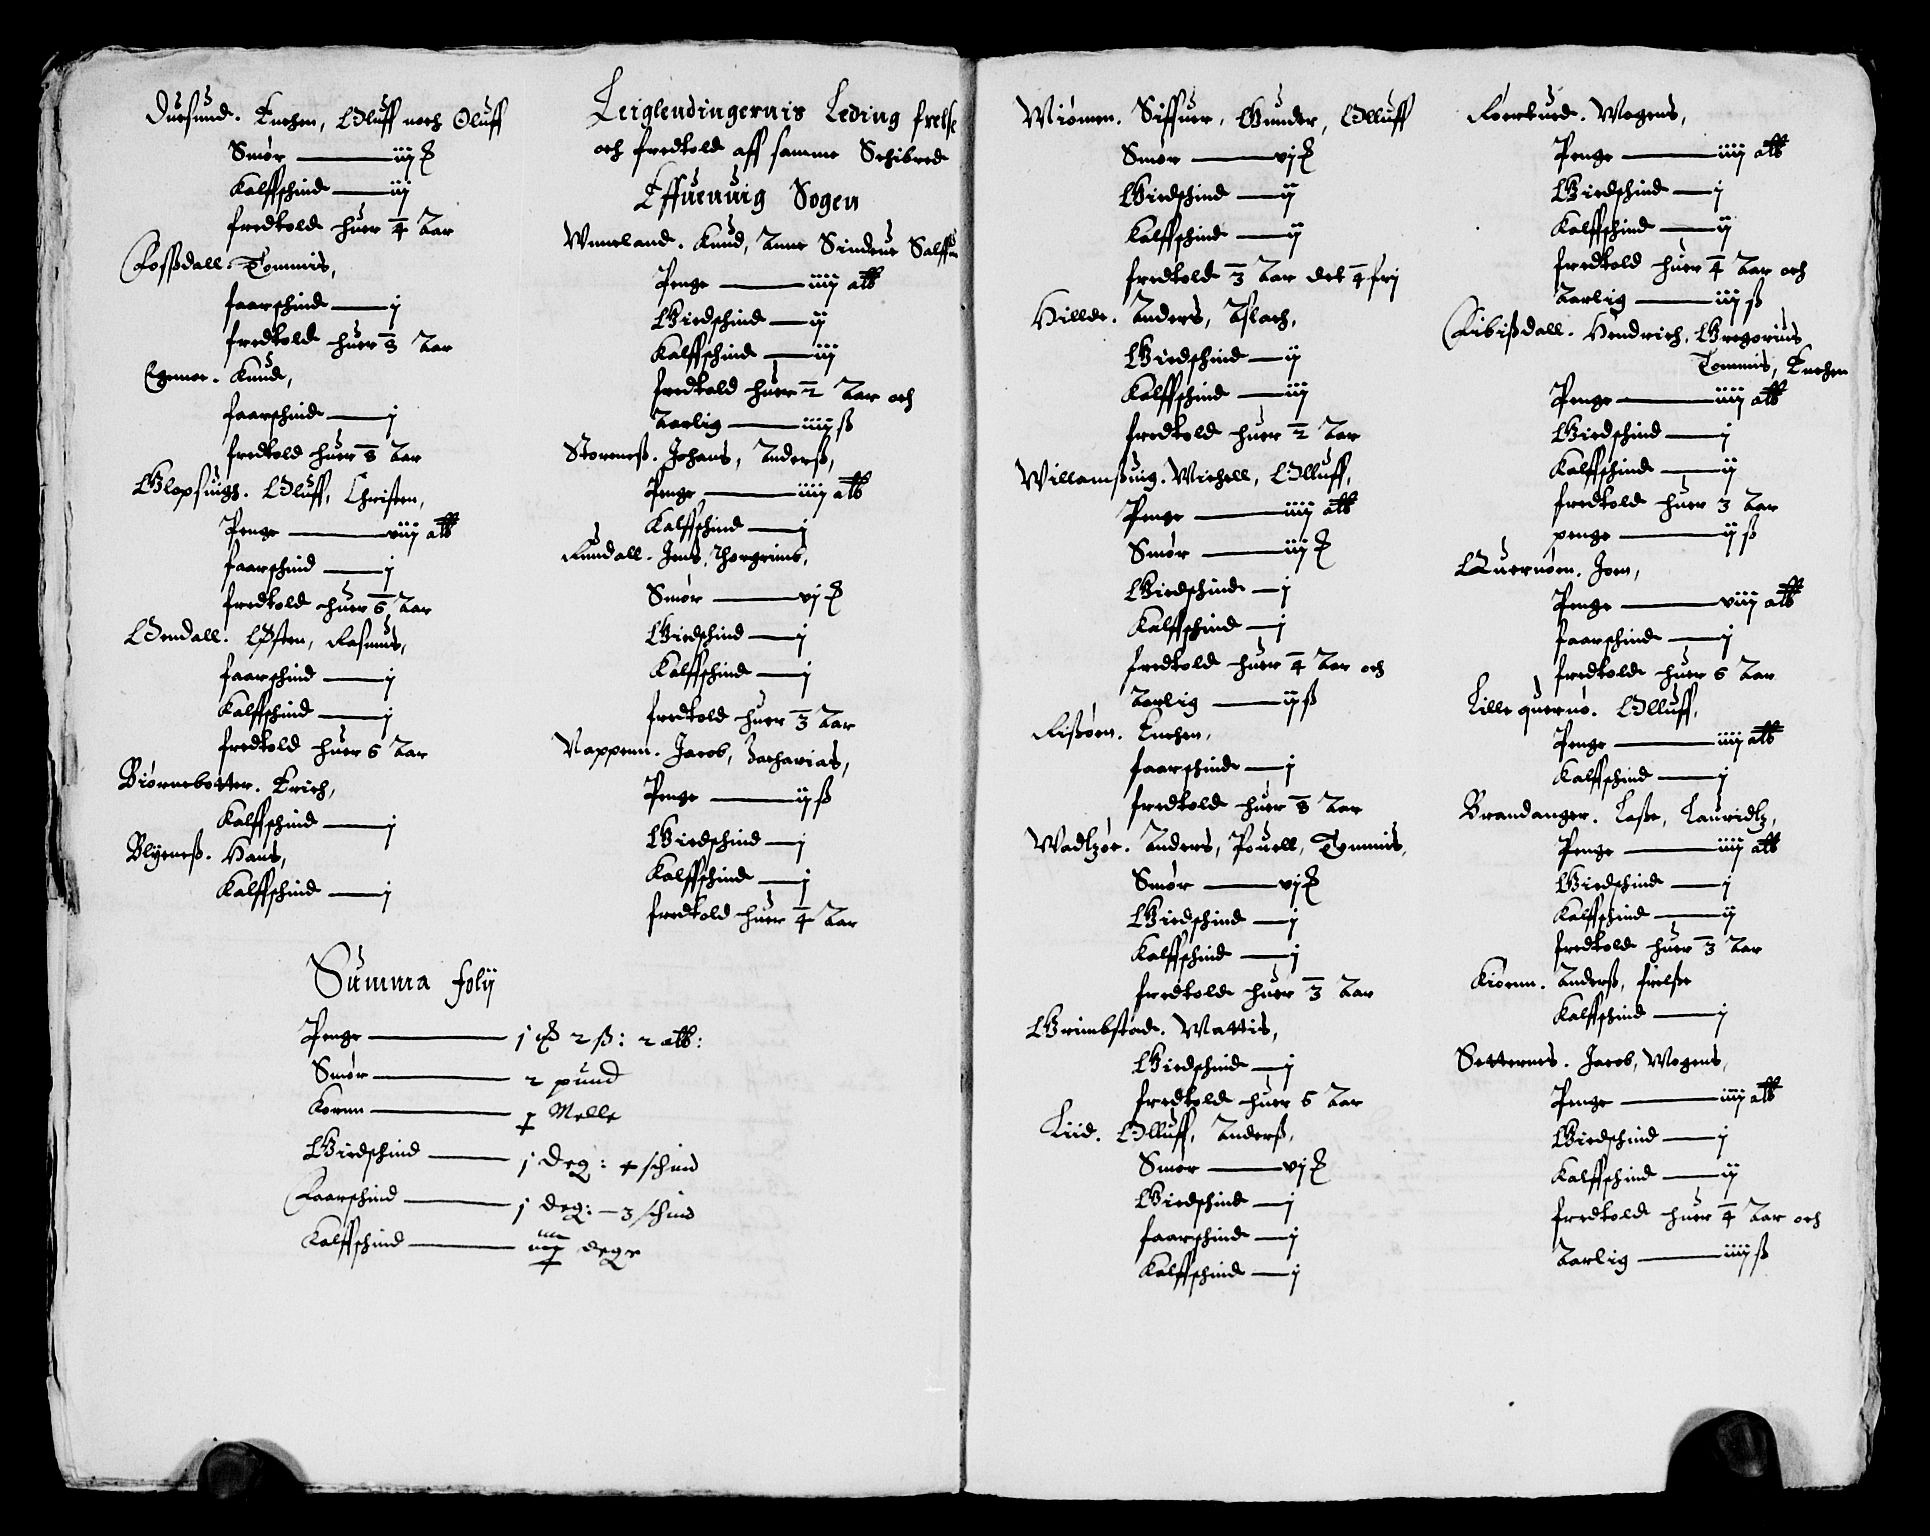 Duesund. Enchen, Oluff noch Oluff
Smør — iij ℔
Kalffschind — iij
fredtold huer 4 Aar
Fossdall. Tommis,
faarschind — j
fredtold huer 8 Aar
Egenoe. Knud,
faarschind — j
fredtold huer 8 Aar
Glopsuigh. Oluff, Christen,
Penge — viij alb
faarschind — j
fredtold huer 6 Aar
Østen, Rasmus,
faarschind — j
Kalffschind — j
fredtold huer 6 Aar
Biørnebotter. Erich,
Kalffschind — j
Blyeneß. Hans,
Kalffschind — j
Summa folij
Penge — j 2 ß: 2 alb:
Smør — 2 pund
Kornn — Melle
Giedschind — j deg: 4 schind
Faarschind — j deg: — 3 schind
Kalffschind — degr
Leiglendingernis Leding frelse
och fredtold aff samme Schibred
Effuenuig Sogen
Wnneland. Knud, Anne Sindeue Salff
Penge — iiij alb
Giedschind — ij
Kalffschind — iij
fredtold huer 2 Aar och
Aarlig — iiij ß
Storeneß. Johans, Anderß,
Penge — iiij alb
Kalffschind — j
Rundall. Jens, Thorgrims,
Smør — vj ℔
Giedschind — j
Kalffschind — j
fredtold huer 3 Aar
Nappenn. Jacob, Zacharias,
Penge — ij ß
Giedschind — j
Kalffschind — j
fredtold huer 4 Aar
Miømen. Siffuer, Gunder, Olluff
Smør — vj ℔
Giedschind — ij
Kalffschind — ij
fredtold 3 Aar det 4 frj
Hillde. Anders, Aslach,
Giedschind — ij
Kalffschind — iij
fredtold huer 2 Aar
Willamßuig. Michell, Olluff,
Penge — iiij alb
Smør — iij ℔
Giedschind — j
Kalffschind — j
fredtold huer 4 Aar och
Aarlig — ij ß
Rißøen. Enchen,
faarschind — j
fredtold huer 8 Aar
Wadtzøe. Anders, Pouell, Tommis,
Smør — vj ℔
Giedschind — j
Kalffschind — j
fredtold huer 3 Aar
Grimbstad. Mattis,
Giedschind — j
fredtold huer 6 Aar
Liid. Olluff, Anderß,
Smør — vj ℔
Giedschind — j
faarschind — j
Kalffschind — j
Mogens,
Penge — iiij alb
Giedschind — j
Kalffschind — ij
fredtold huer 4 Aar och
Aarlig — iij ß
Hendrich, Gregorius
Tommis, Enchen
Penge — iiij alb
Giedschind — j
Kalffschind — ij
fredtold huer 3 Aar
penge — ij ß
Quernøen. Joen,
Penge — viij alb
faarschind — j
fredtold huer 6 Aar
Lille quernø. Olluff,
Penge — iiij alb
Kalffschind — j
Brandanger. Laße, Lauridtz,
Penge — iiij alb
Giedschind — j
Kalffschind — ij
fredtold huer 3 Aar
Anderß, frelße
Kalffschind — j
Setternes. Jacob, Mogens,
Penge — iiij alb
Giedschind — j
Kalffschind — ij
fredtold huer 4 Aar och
Aarlig — iiij ß